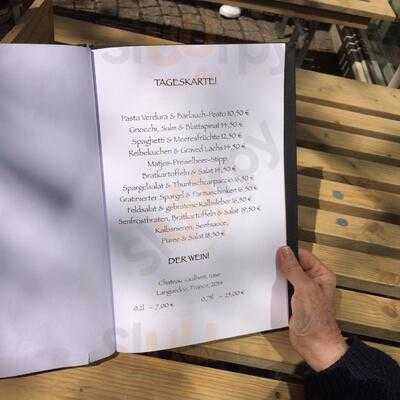 TAGESKARTE!
Pasta Verdura & Bärlauch-Pesto 10,50 €
Gnocchi, Salm & Blattspinat 14,50 €
Spaghetti & Meeresfrüchte 12,50 €
Reibekuchen & Graved Lachs 14,50 €
Matjes-Preiselbeer-Stipp,
Bratkartoffeln & Salat 14,50 €
Spargelsalat & Thunfischcarpaccio 16,50 €
Gratinierter Spargel & Parmaschinken 16,50 €
Feldsalat & gebratene Kalbsleber 16,50 €
Senfrostbraten, Bratkartoffeln & Salat 19,50 €
Kalbsnieren, Senfsauce,
Püree & Salat 18,50 €
DER WEIN!
Chateau Guilhem, rose
Languedoc, France, 2019
0,2l – 7,00 € 0,75l – 25,00 €